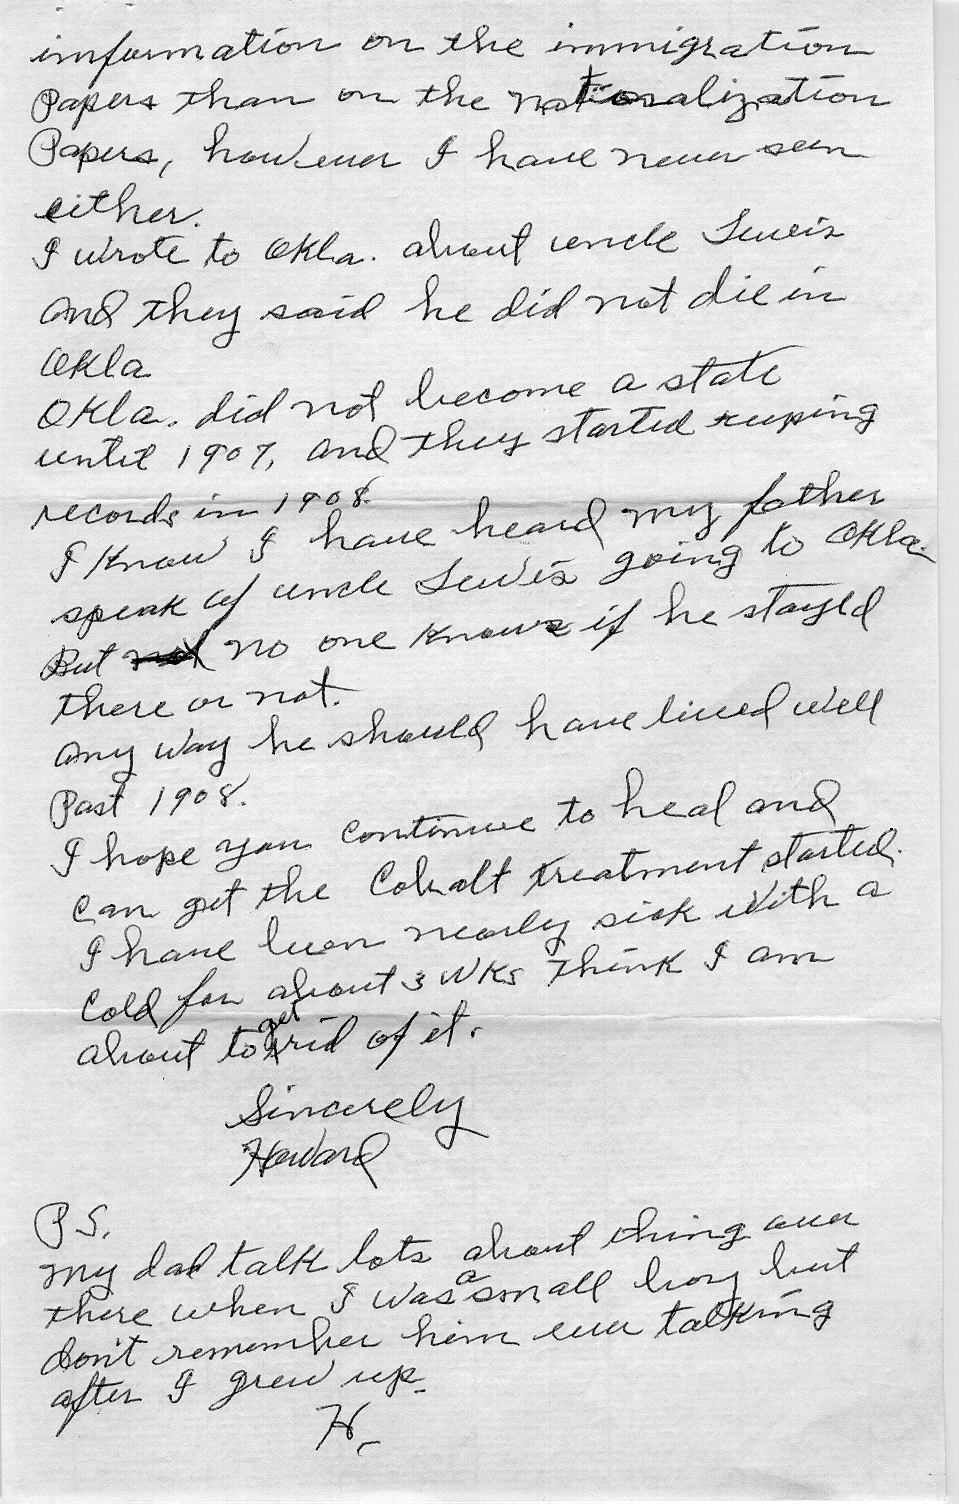 information on the immigration
Papers than on the nationalization
Papers, however I have never seen
either.
I wrote to Okla. about uncle Lewis
and they said he did not die in
Okla
Okla. did not become a state
until 1907, and they started keeping
records in 1908.
I know I have heard my father
speak of uncle Lewis going to Okla.
But no one knows if he stayed
there or not.
any way he should have lived well
Past 1908.
I hope you continue to heal and
can get the Cobalt treatment started.
I have been nearly sick with a
cold for about 3 wks think I am
about to get rid of it.
Sincerely
Howard
P.S.
my dad talk lots about thing over
there when I was a small boy but
don't remember him ever talking
after I grew up.
H.